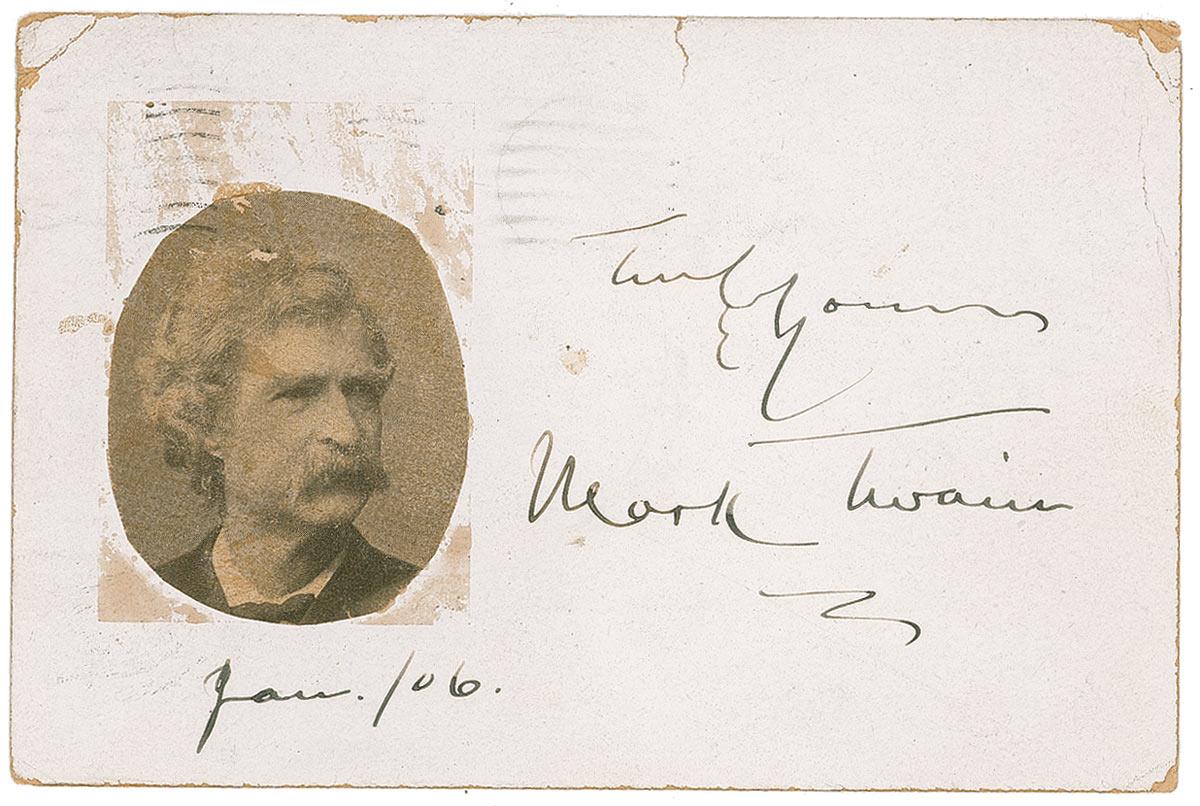 Truly Yours
Mark Twain
Jan. /06.